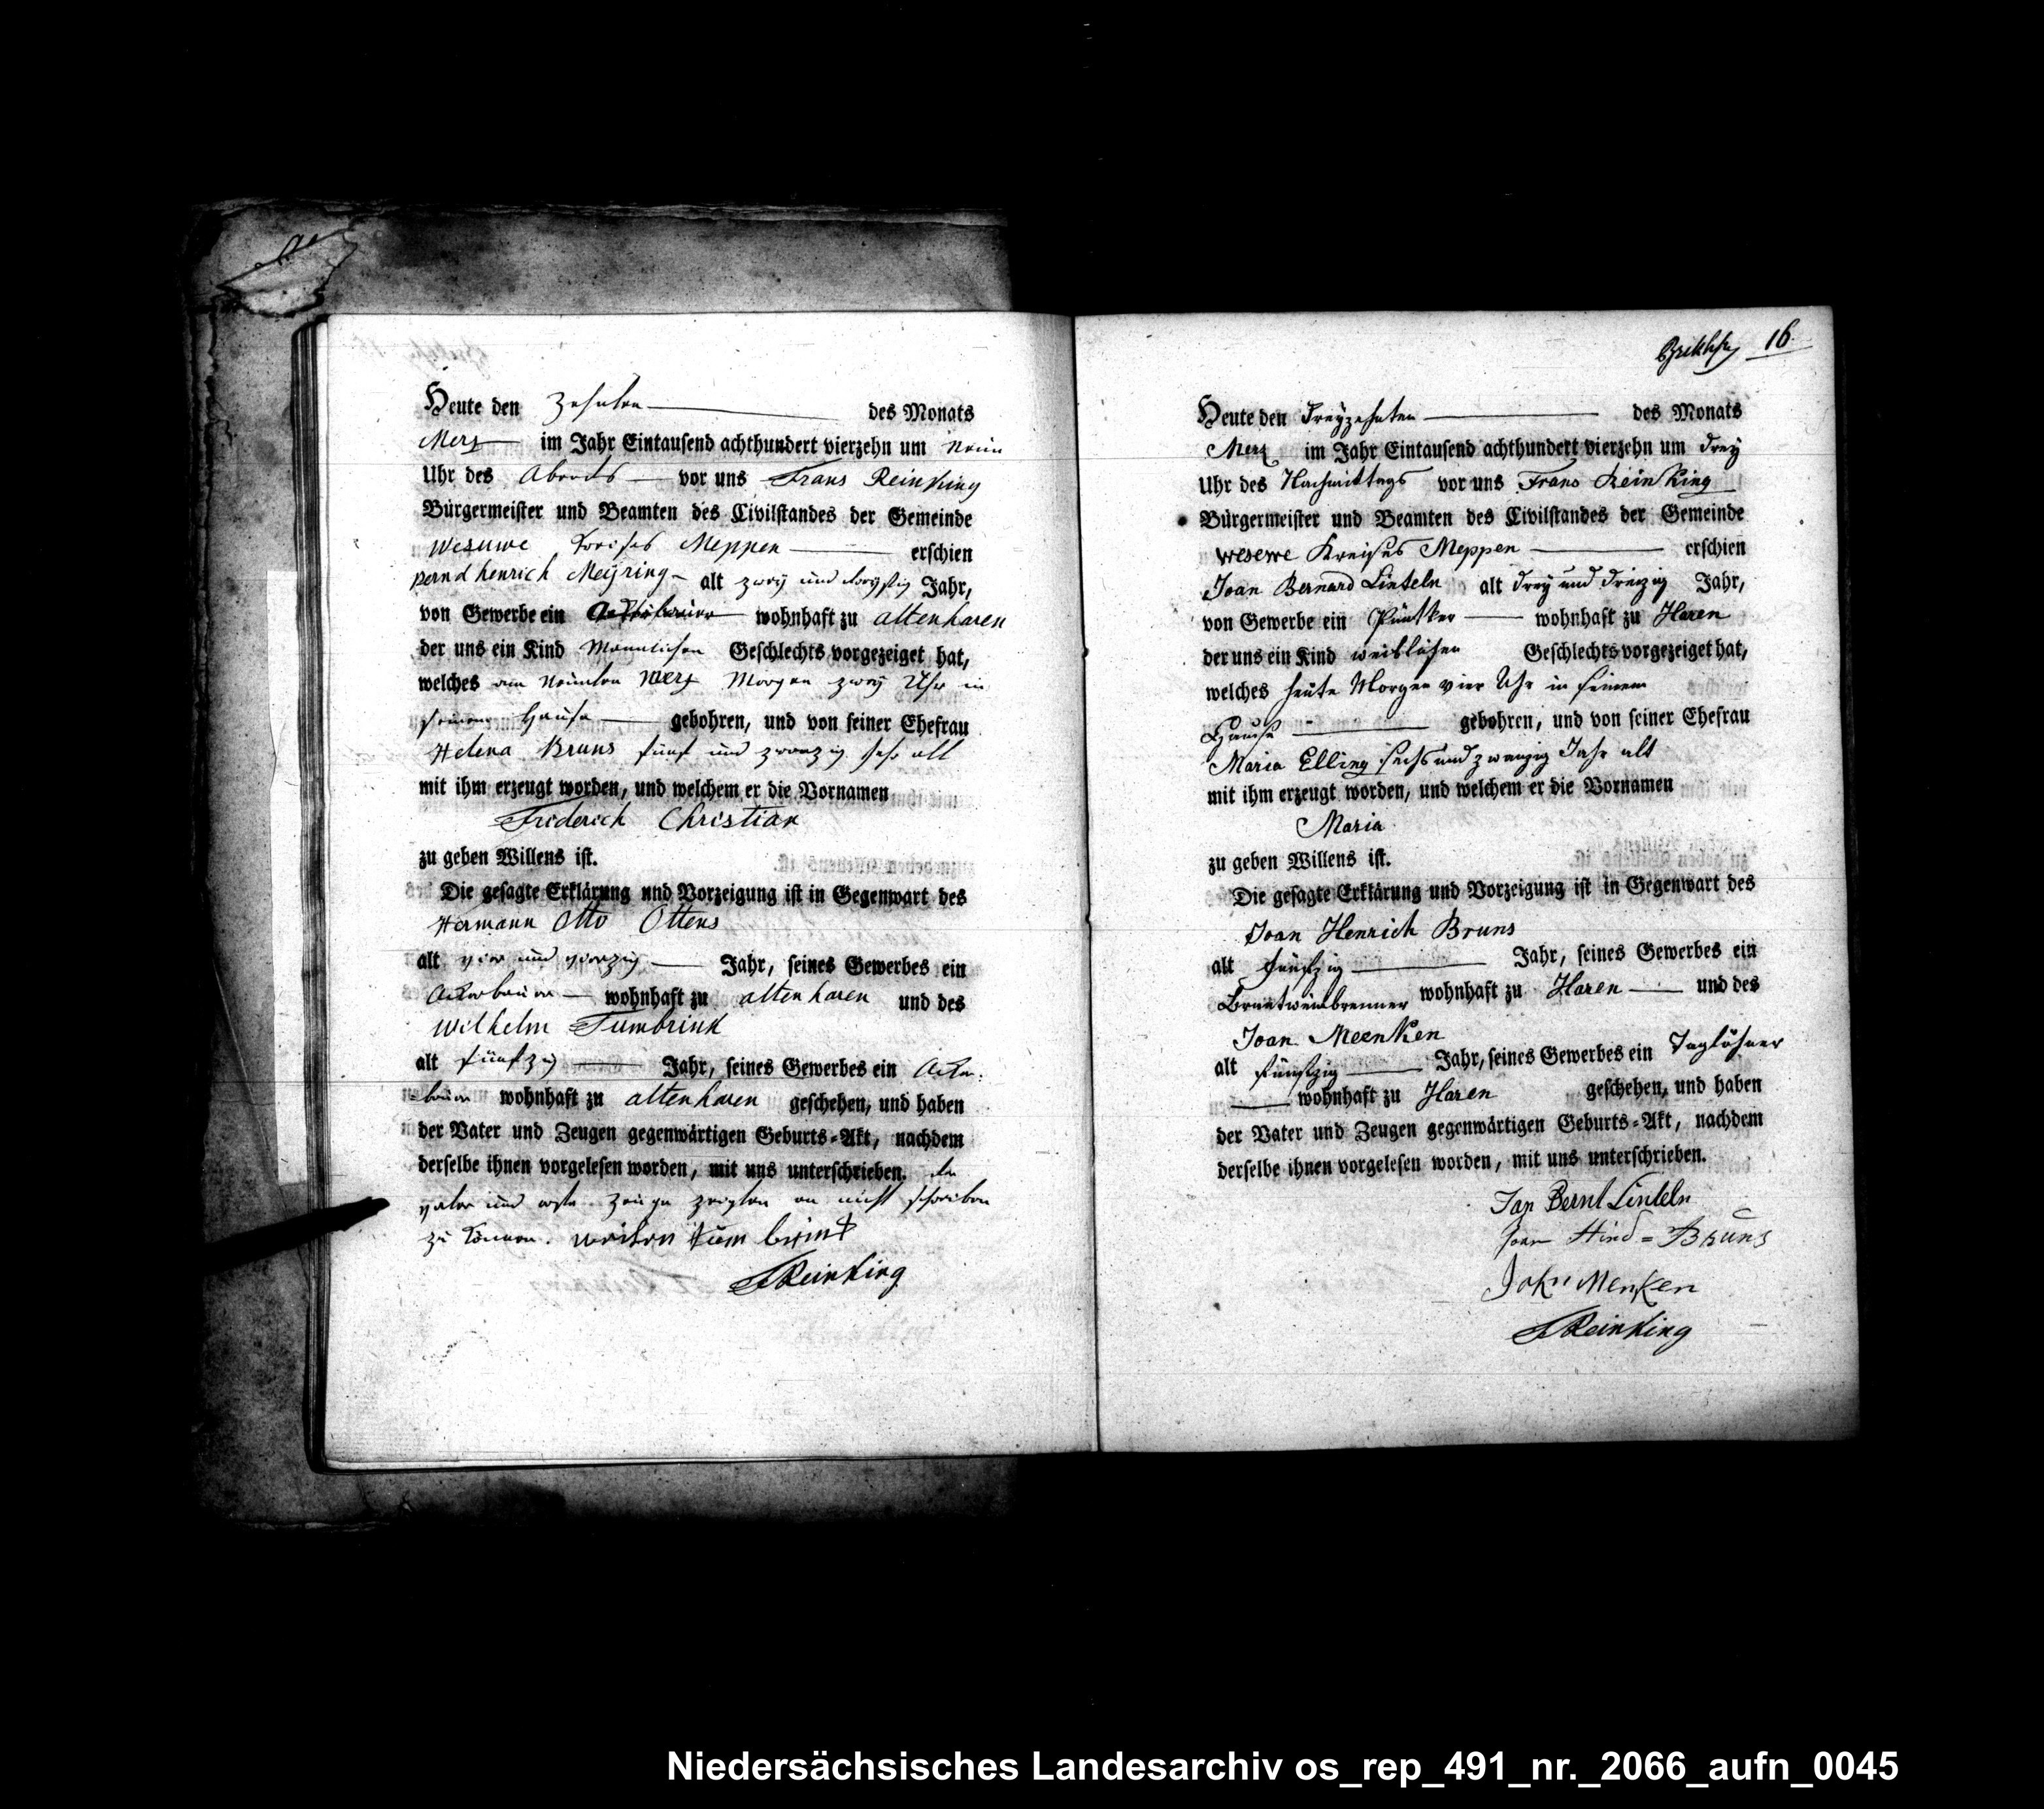 Heute den Zehnten des Monats
Merz im Jahr Eintausend achthundert vierzehn um Neun
Uhr des Abends vor uns Frans Reinking
Bürgermeister und Beamten des Civilstandes der Gemeinde
Wesuwe Kreises Meppen erschien
Bernd Henrich Meÿring alt zweÿ und dreÿsig Jahr,
von Gewerbe ein Ackerbauer wohnhaft zu altenharen
der uns ein Kind Mannlichen Geschlechts vorgezeiget hat,
welches am Neunten Merz Morgen zweÿ Uhr in
seinem Hause gebohren, und von seiner Ehefrau
Helena Bruns fünf und zwanzig Jahr alt
mit ihm erzeugt worden, und welchem er die Vornamen
Friderich Christian
zu geben Willens ist.
Die gesagte Erklärung und Vorzeigung ist in Gegenwart des
Hermann Otto Ottens
alt vier und vierzig Jahr, seines Gewerbes ein
Ackerbauer wohnhaft zu altenharen und des
Wilhelm Tumbrink
alt fünfzig Jahr, seines Gewerbes ein Acker-
bauer wohnhaft zu altenharen geschehen, und haben
der Vater und Zeugen gegenwärtigen Geburts-Akt, nachdem
derselbe ihnen vorgelesen worden, mit uns unterschrieben. der
vater und erste Zeuge zeigten an nicht schreiben
zu können. tum brink
F Reinking
16
Heute den dreyzehnten des Monats
Merz im Jahr Eintausend achthundert vierzehn um drey
Uhr des Nachmittags vor uns Frans Reinking
Bürgermeister und Beamten des Civilstandes der Gemeinde
Wesewe Kreises Meppen erschien
Joan Bernard Linteln alt drey und dreizig Jahr,
von Gewerbe ein Püntker wohnhaft zu Haren
der uns ein Kind weiblichen Geschlechts vorgezeiget hat,
welches heute Morgen vier Uhr in seinem
Hause gebohren, und von seiner Ehefrau
Maria Elling sechs und zwanzig Jahr alt
mit ihm erzeugt worden, und welchem er die Vornamen
Maria
zu geben Willens ist.
Die gesagte Erklärung und Vorzeigung ist in Gegenwart des
Joan Henrich Bruns
alt fünfzig Jahr, seines Gewerbes ein
Brantweinbrenner wohnhaft zu Haren und des
Joan Meenken
alt fünfzig Jahr, seines Gewerbes ein Taglöhner
wohnhaft zu Haren geschehen, und haben
der Vater und Zeugen gegenwärtigen Geburts-Akt, nachdem
derselbe ihnen vorgelesen worden, mit uns unterschrieben.
Jan Bernt Linteln
Joan Hind = Bruns
Joh: Menken
F Reinking
Niedersächsisches Landesarchiv os_rep_491_nr._2066_aufn_0045